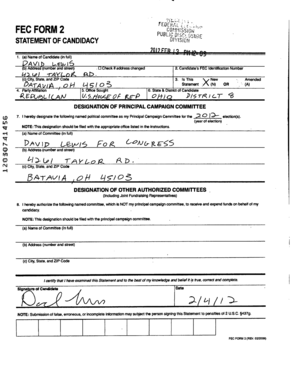 FEC FORM 2
STATEMENT OF CANDIDACY
FEDERAL ELECTION
COMMISSION
PUBLIC DISCLOSURE
DIVISION
2012 FEB 13
1. (a) Name of Candidate (in full)
DAVID LEWIS
(b) Address (number and street) Check if address changed 2. Candidate's FEC Identification Number
4241 TAYLOR RD.
(c) City, State, and ZIP Code 3. Is This Statement X New (N) OR Amended (A)
BATAVIA, OH 45103
4. Party Affiliation 5. Office Sought 6. State & District of Candidate
REPUBLICAN U.S. HOUSE OF REP OHIO DISTRICT 8
DESIGNATION OF PRINCIPAL CAMPAIGN COMMITTEE
7. I hereby designate the following named political committee as my Principal Campaign Committee for the 2012 election(s).
(year of election)
NOTE: This designation should be filed with the appropriate office listed in the instructions.
(a) Name of Committee (in full)
DAVID LEWIS FOR CONGRESS
(b) Address (number and street)
4241 TAYLOR RD.
(c) City, State, and ZIP Code
BATAVIA, OH 45103
DESIGNATION OF OTHER AUTHORIZED COMMITTEES
(Including Joint Fundraising Representatives)
8. I hereby authorize the following named committee, which is NOT my principal campaign committee, to receive and expend funds on behalf of my
candidacy.
NOTE: This designation should be filed with the principal campaign committee.
(a) Name of Committee (in full)
(b) Address (number and street)
(c) City, State, and ZIP Code
I certify that I have examined this Statement and to the best of my knowledge and belief it is true, correct and complete.
Signature of Candidate Date
2/4/12
NOTE: Submission of false, erroneous, or incomplete information may subject the person signing this Statement to penalties of 2 U.S.C. §437g.
FEC FORM 2 (REV. 02/2009)
12030741456